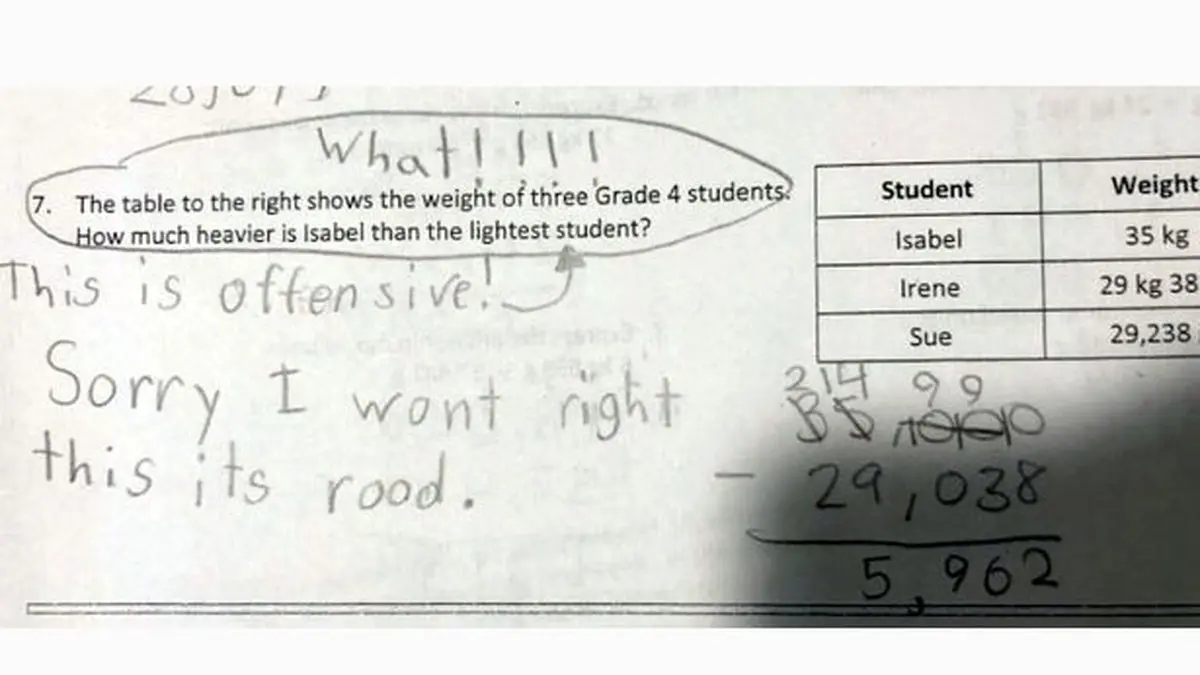 What!!!!!
7. The table to the right shows the weight of three Grade 4 students.
How much heavier is Isabel than the lightest student?
This is offensive!
Sorry I wont right
this its rood.
Student Weight
Isabel 35 kg
Irene 29 kg 38
Sue 29,238
214 9 9
35 1000
- 29,038
5,962